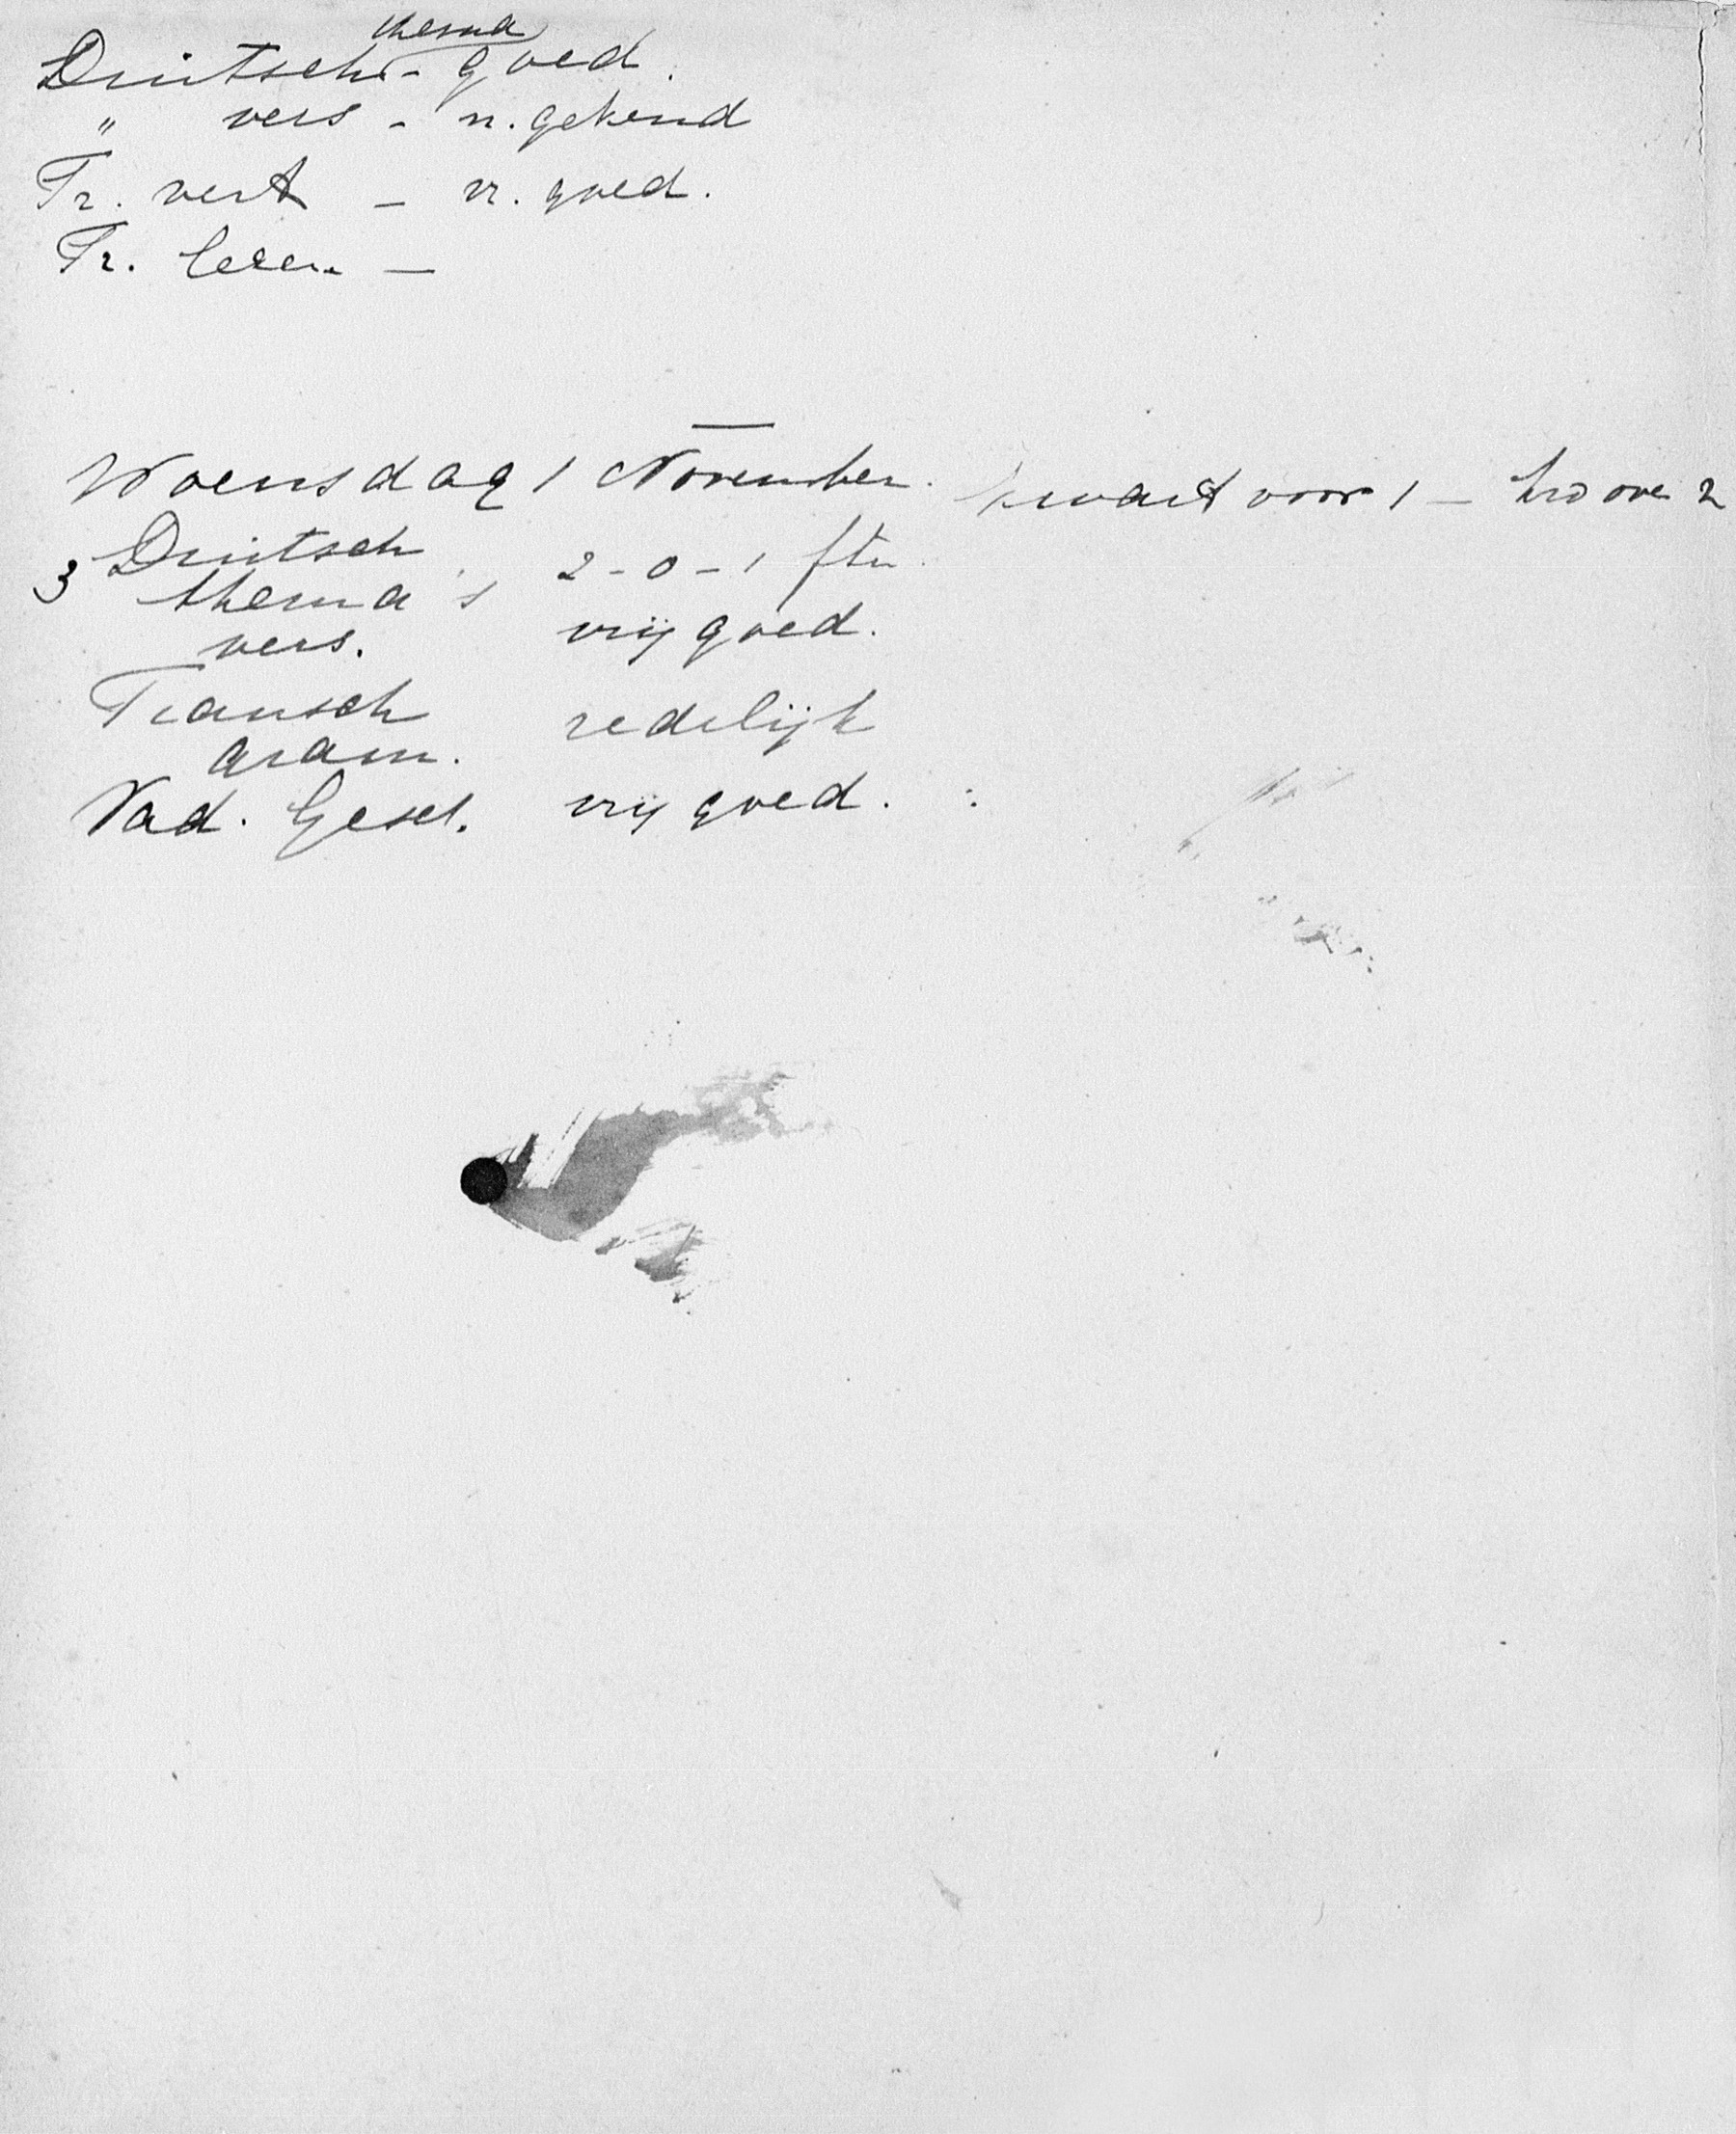 Duitsch thema - goed.
" vers - n. gekend
Fr. vert - vr. goed.
Fr. lezen -
Woensdag 1 November. kwart voor 1 - over 2
3 Duitsch thema's 2-0-1 ftn.
vers. vrij goed.
Fransch gram. redelijk
Vad. Gesch. vrij goed.